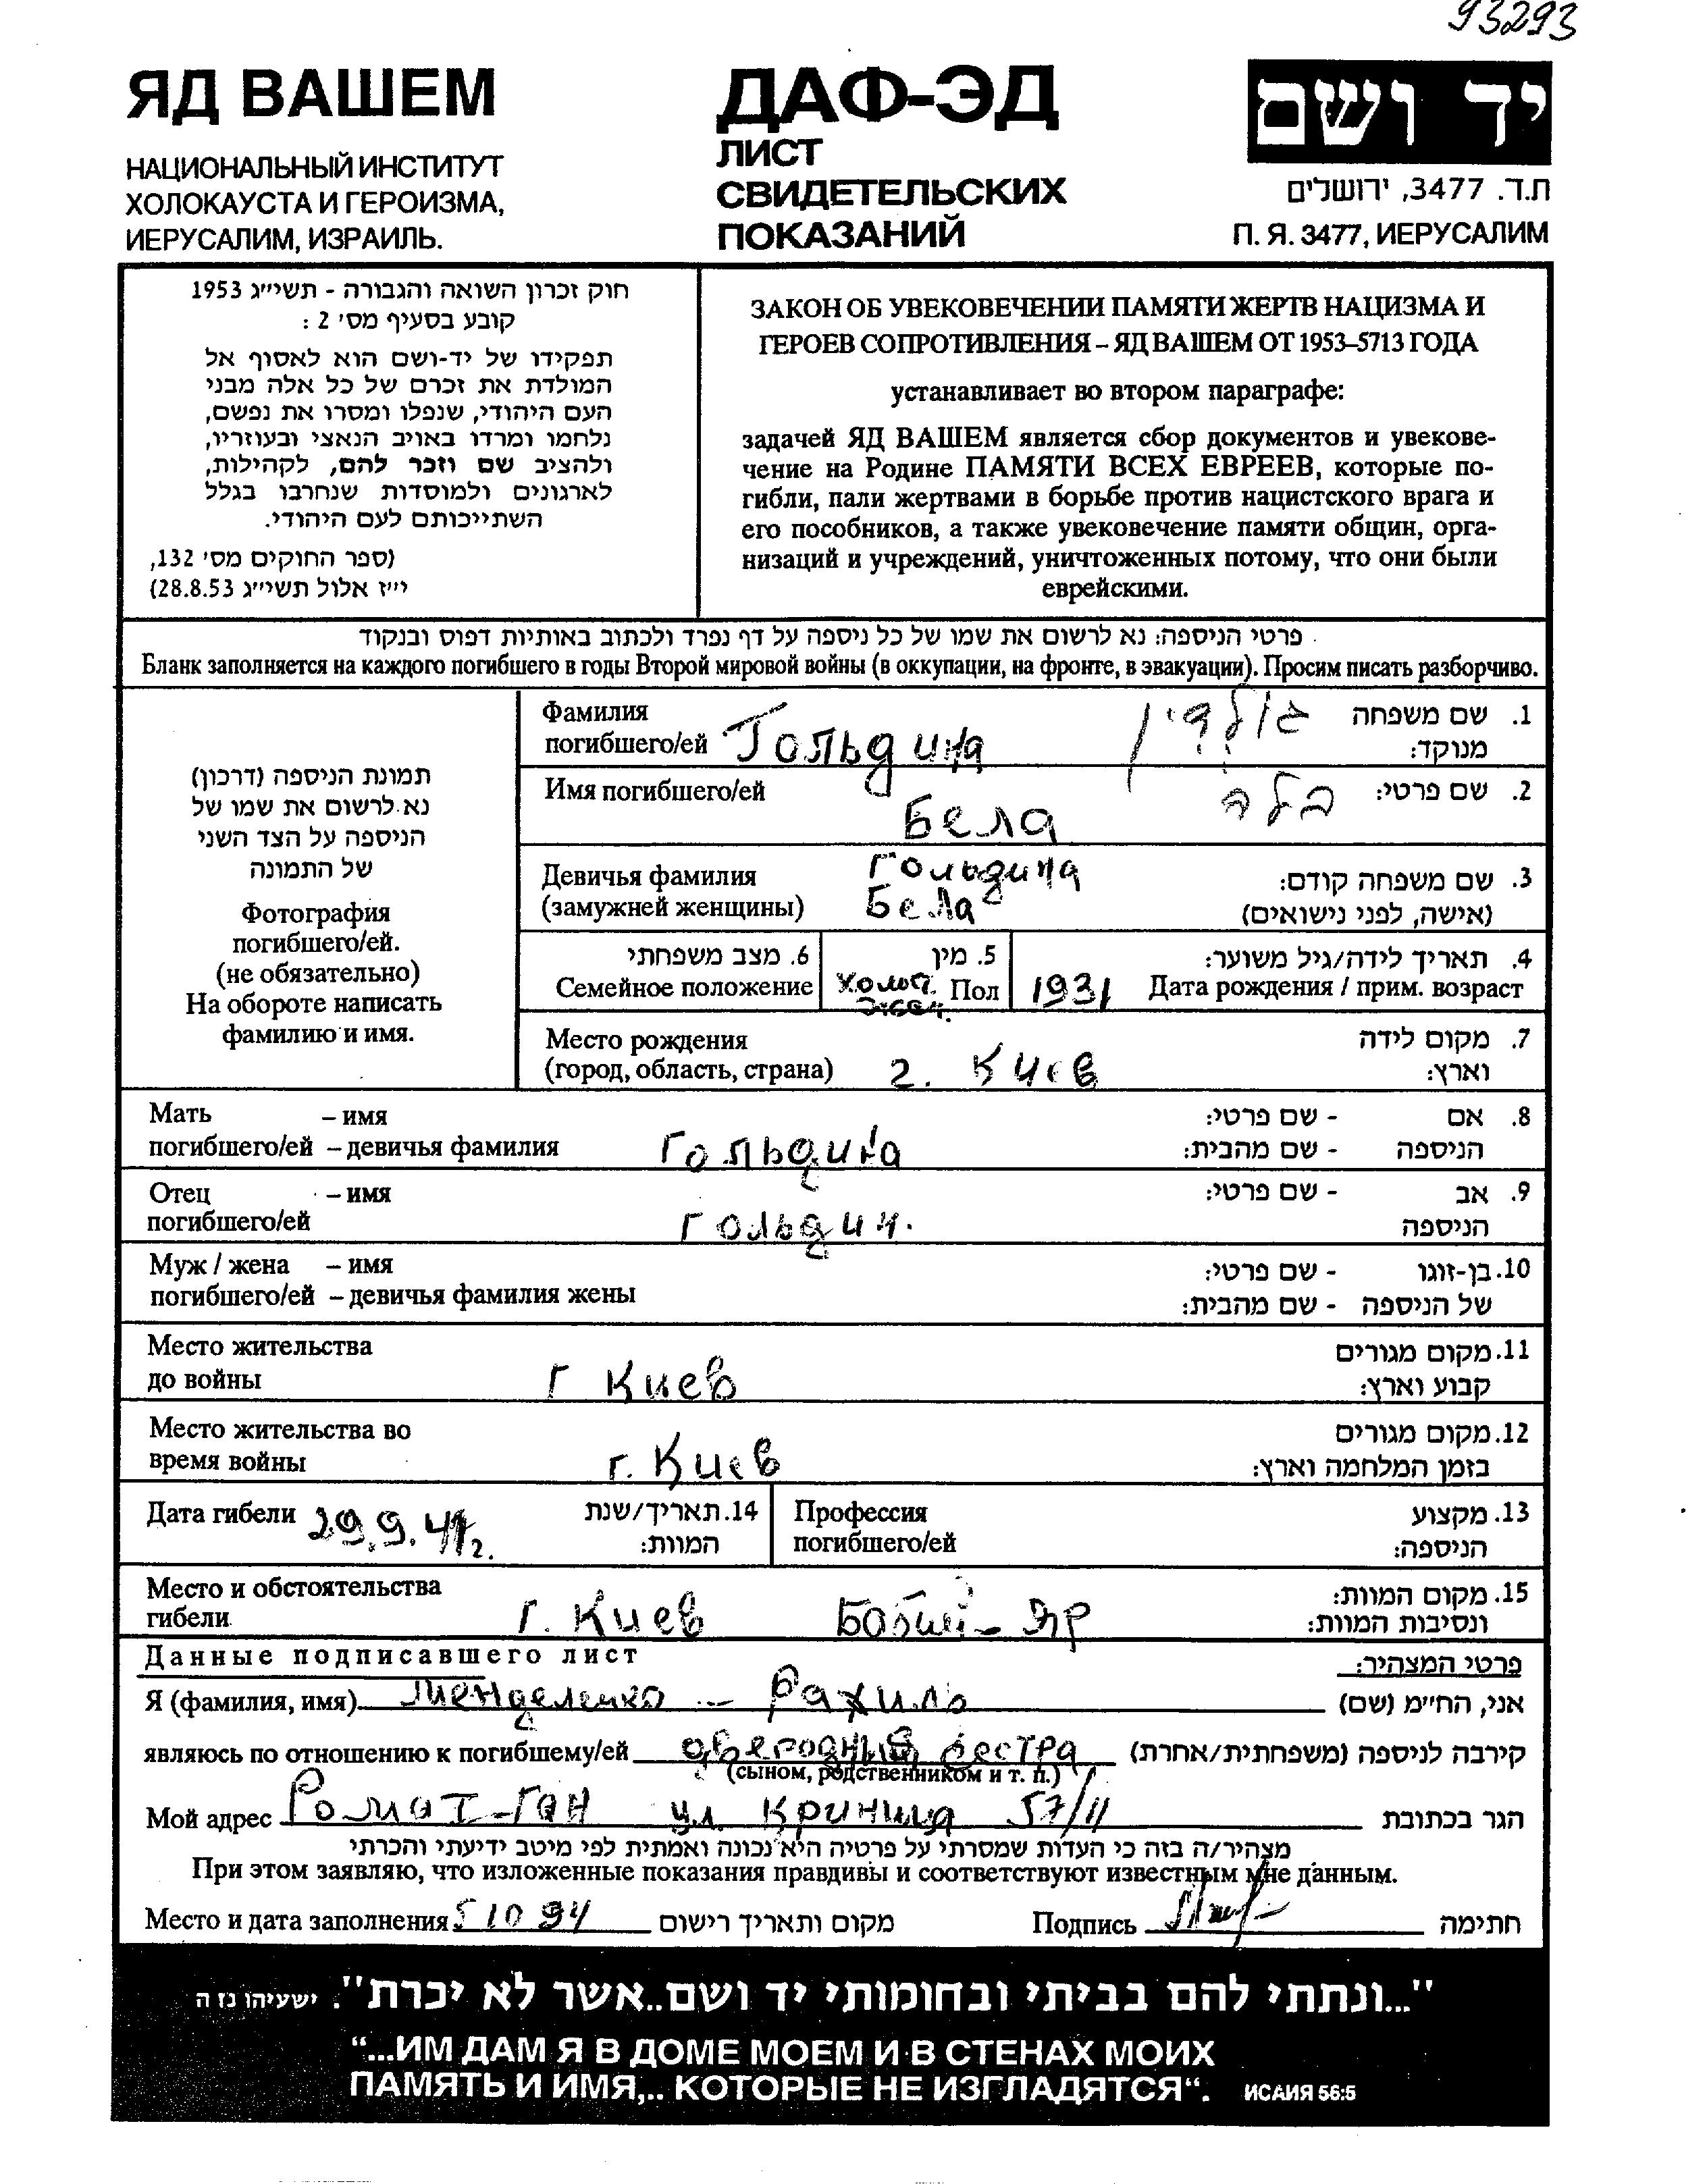 93293
ЯД ВАШЕМ
НАЦИОНАЛЬНЫЙ ИНСТИТУТ
ХОЛОКАУСТА И ГЕРОИЗМА,
ИЕРУСАЛИМ, ИЗРАИЛЬ.
ДАФ-ЭД
ЛИСТ
СВИДЕТЕЛЬСКИХ
ПОКАЗАНИЙ
יד ושם
ת.ד. 3477, ירושלים
П. Я. 3477, ИЕРУСАЛИМ
חוק זכרון השואה והגבורה - תשי״ג 1953
קובע בסעיף מס׳ 2 :
תפקידו של יד-ושם הוא לאסוף אל
המולדת את זכרם של כל אלה מבני
העם היהודי, שנפלו ומסרו את נפשם,
נלחמו ומרדו באויב הנאצי ובעוזריו,
ולהציב שם וזכר להם, לקהילות,
לארגונים ולמוסדות שנחרבו בגלל
השתייכותם לעם היהודי.
(ספר החוקים מס׳ 132,
י״ז אלול תשי״ג 28.8.53)
ЗАКОН ОБ УВЕКОВЕЧЕНИИ ПАМЯТИ ЖЕРТВ НАЦИЗМА И
ГЕРОЕВ СОПРОТИВЛЕНИЯ – ЯД ВАШЕМ ОТ 1953–5713 ГОДА
устанавливает во втором параграфе:
задачей ЯД ВАШЕМ является сбор документов и увекове-
чение на Родине ПАМЯТИ ВСЕХ ЕВРЕЕВ, которые по-
гибли, пали жертвами в борьбе против нацистского врага и
его пособников, а также увековечение памяти общин, орга-
низаций и учреждений, уничтоженных потому, что они были
еврейскими.
פרטי הניספה: נא לרשום את שמו של כל ניספה על דף נפרד ולכתוב באותיות דפוס ובנקוד
Бланк заполняется на каждого погибшего в годы Второй мировой войны (в оккупации, на фронте, в эвакуации). Просим писать разборчиво.
תמונת הניספה (דרכון)
נא לרשום את שמו של
הניספה על הצד השני
של התמונה
Фотография
погибшего/ей.
(не обязательно)
На обороте написать
фамилию и имя.
Фамилия
погибшего/ей Гольдина גולדין
1. שם משפחה
מנוקד:
Имя погибшего/ей Бела בלה 2. שם פרטי:
Девичья фамилия Гольдина 3. שם משפחה קודם:
(замужней женщины) Бела (אישה, לפני נישואים)
6. מצב משפחתי
Семейное положение
5. מין
Пол холост. жен.
4. תאריך לידה/גיל משוער:
1931 Дата рождения / прим. возраст
Место рождения 7. מקום לידה
(город, область, страна) г. Киев וארץ:
Мать – имя 8. אם - שם פרטי:
погибшего/ей – девичья фамилия Гольдина הניספה - שם מהבית:
Отец – имя 9. אב - שם פרטי:
погибшего/ей Гольдин. הניספה
Муж / жена – имя 10. בן-זוגו - שם פרטי:
погибшего/ей – девичья фамилия жены של הניספה - שם מהבית:
Место жительства 11. מקום מגורים
до войны г Киев קבוע וארץ:
Место жительства во 12. מקום מגורים
время войны г. Киев בזמן המלחמה וארץ:
Дата гибели 29.9.41г. 14. תאריך/שנת
המוות:
Профессия 13. מקצוע
погибшего/ей הניספה:
Место и обстоятельства 15. מקום המוות:
гибели г. Киев Бабий-Яр ונסיבות המוות:
Данные подписавшего лист פרטי המצהיר:
Я (фамилия, имя) Менделенко - Рахиль אני, הח״מ (שם)
являюсь по отношению к погибшему/ей двегодный сестра קירבה לניספה (משפחתית/אחרת)
(сыном, родственником и т. п.)
Мой адрес Ромат-Ган ул. Криница 57/11 הגר בכתובת
מצהיר/ה בזה כי העדות שמסרתי על פרטיה היא נכונה ואמתית לפי מיטב ידיעתי והכרתי
При этом заявляю, что изложенные показания правдивы и соответствуют известным мне данным.
Место и дата заполнения 5 10 94 מקום ותאריך רישום Подпись חתימה
"...ונתתי להם בביתי ובחומותי יד ושם..אשר לא יכרת". ישעיהו נז ה
“...ИМ ДАМ Я В ДОМЕ МОЕМ И В СТЕНАХ МОИХ
ПАМЯТЬ И ИМЯ,.. КОТОРЫЕ НЕ ИЗГЛАДЯТСЯ“. ИСАИЯ 56:5